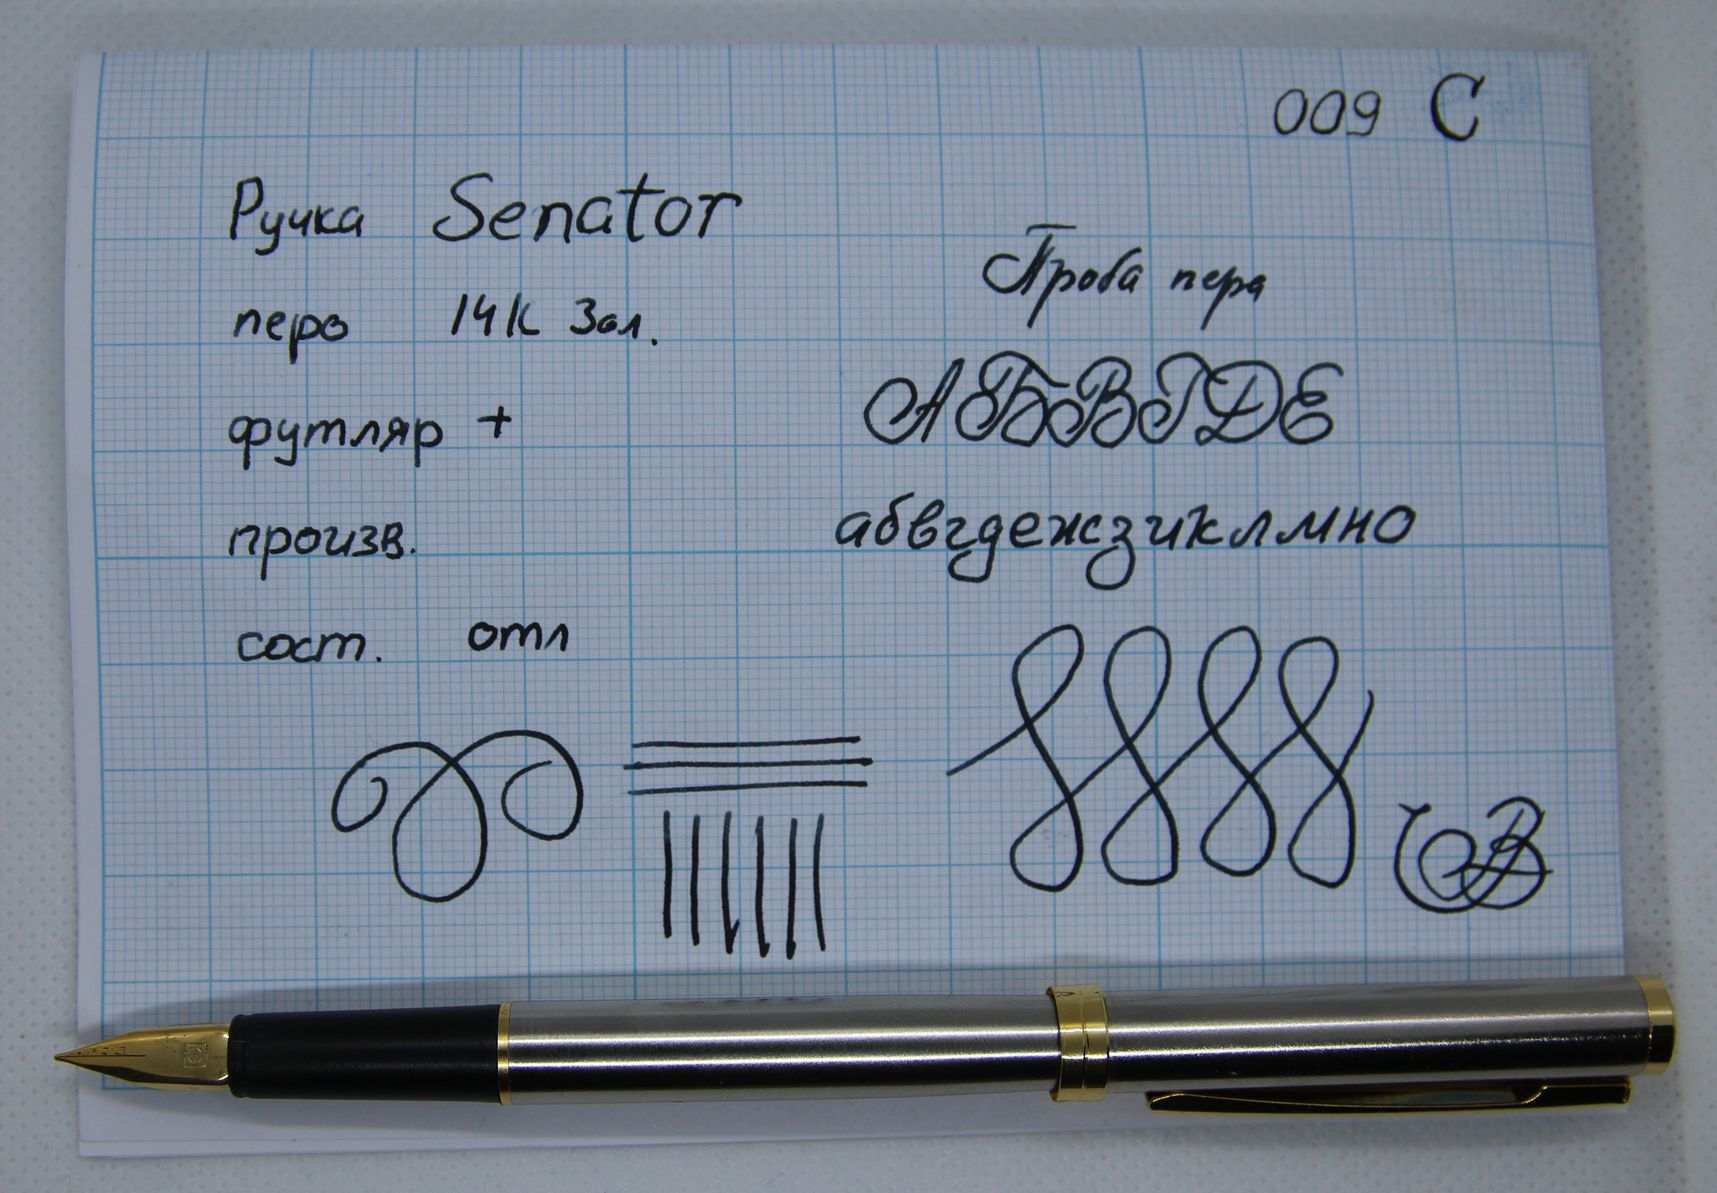 009 С
Ручка Senator
перо 14К Зол.
футляр +
произв.
сост. отл
Проба пера
АБВГДЕ
абвгдежзиклмно